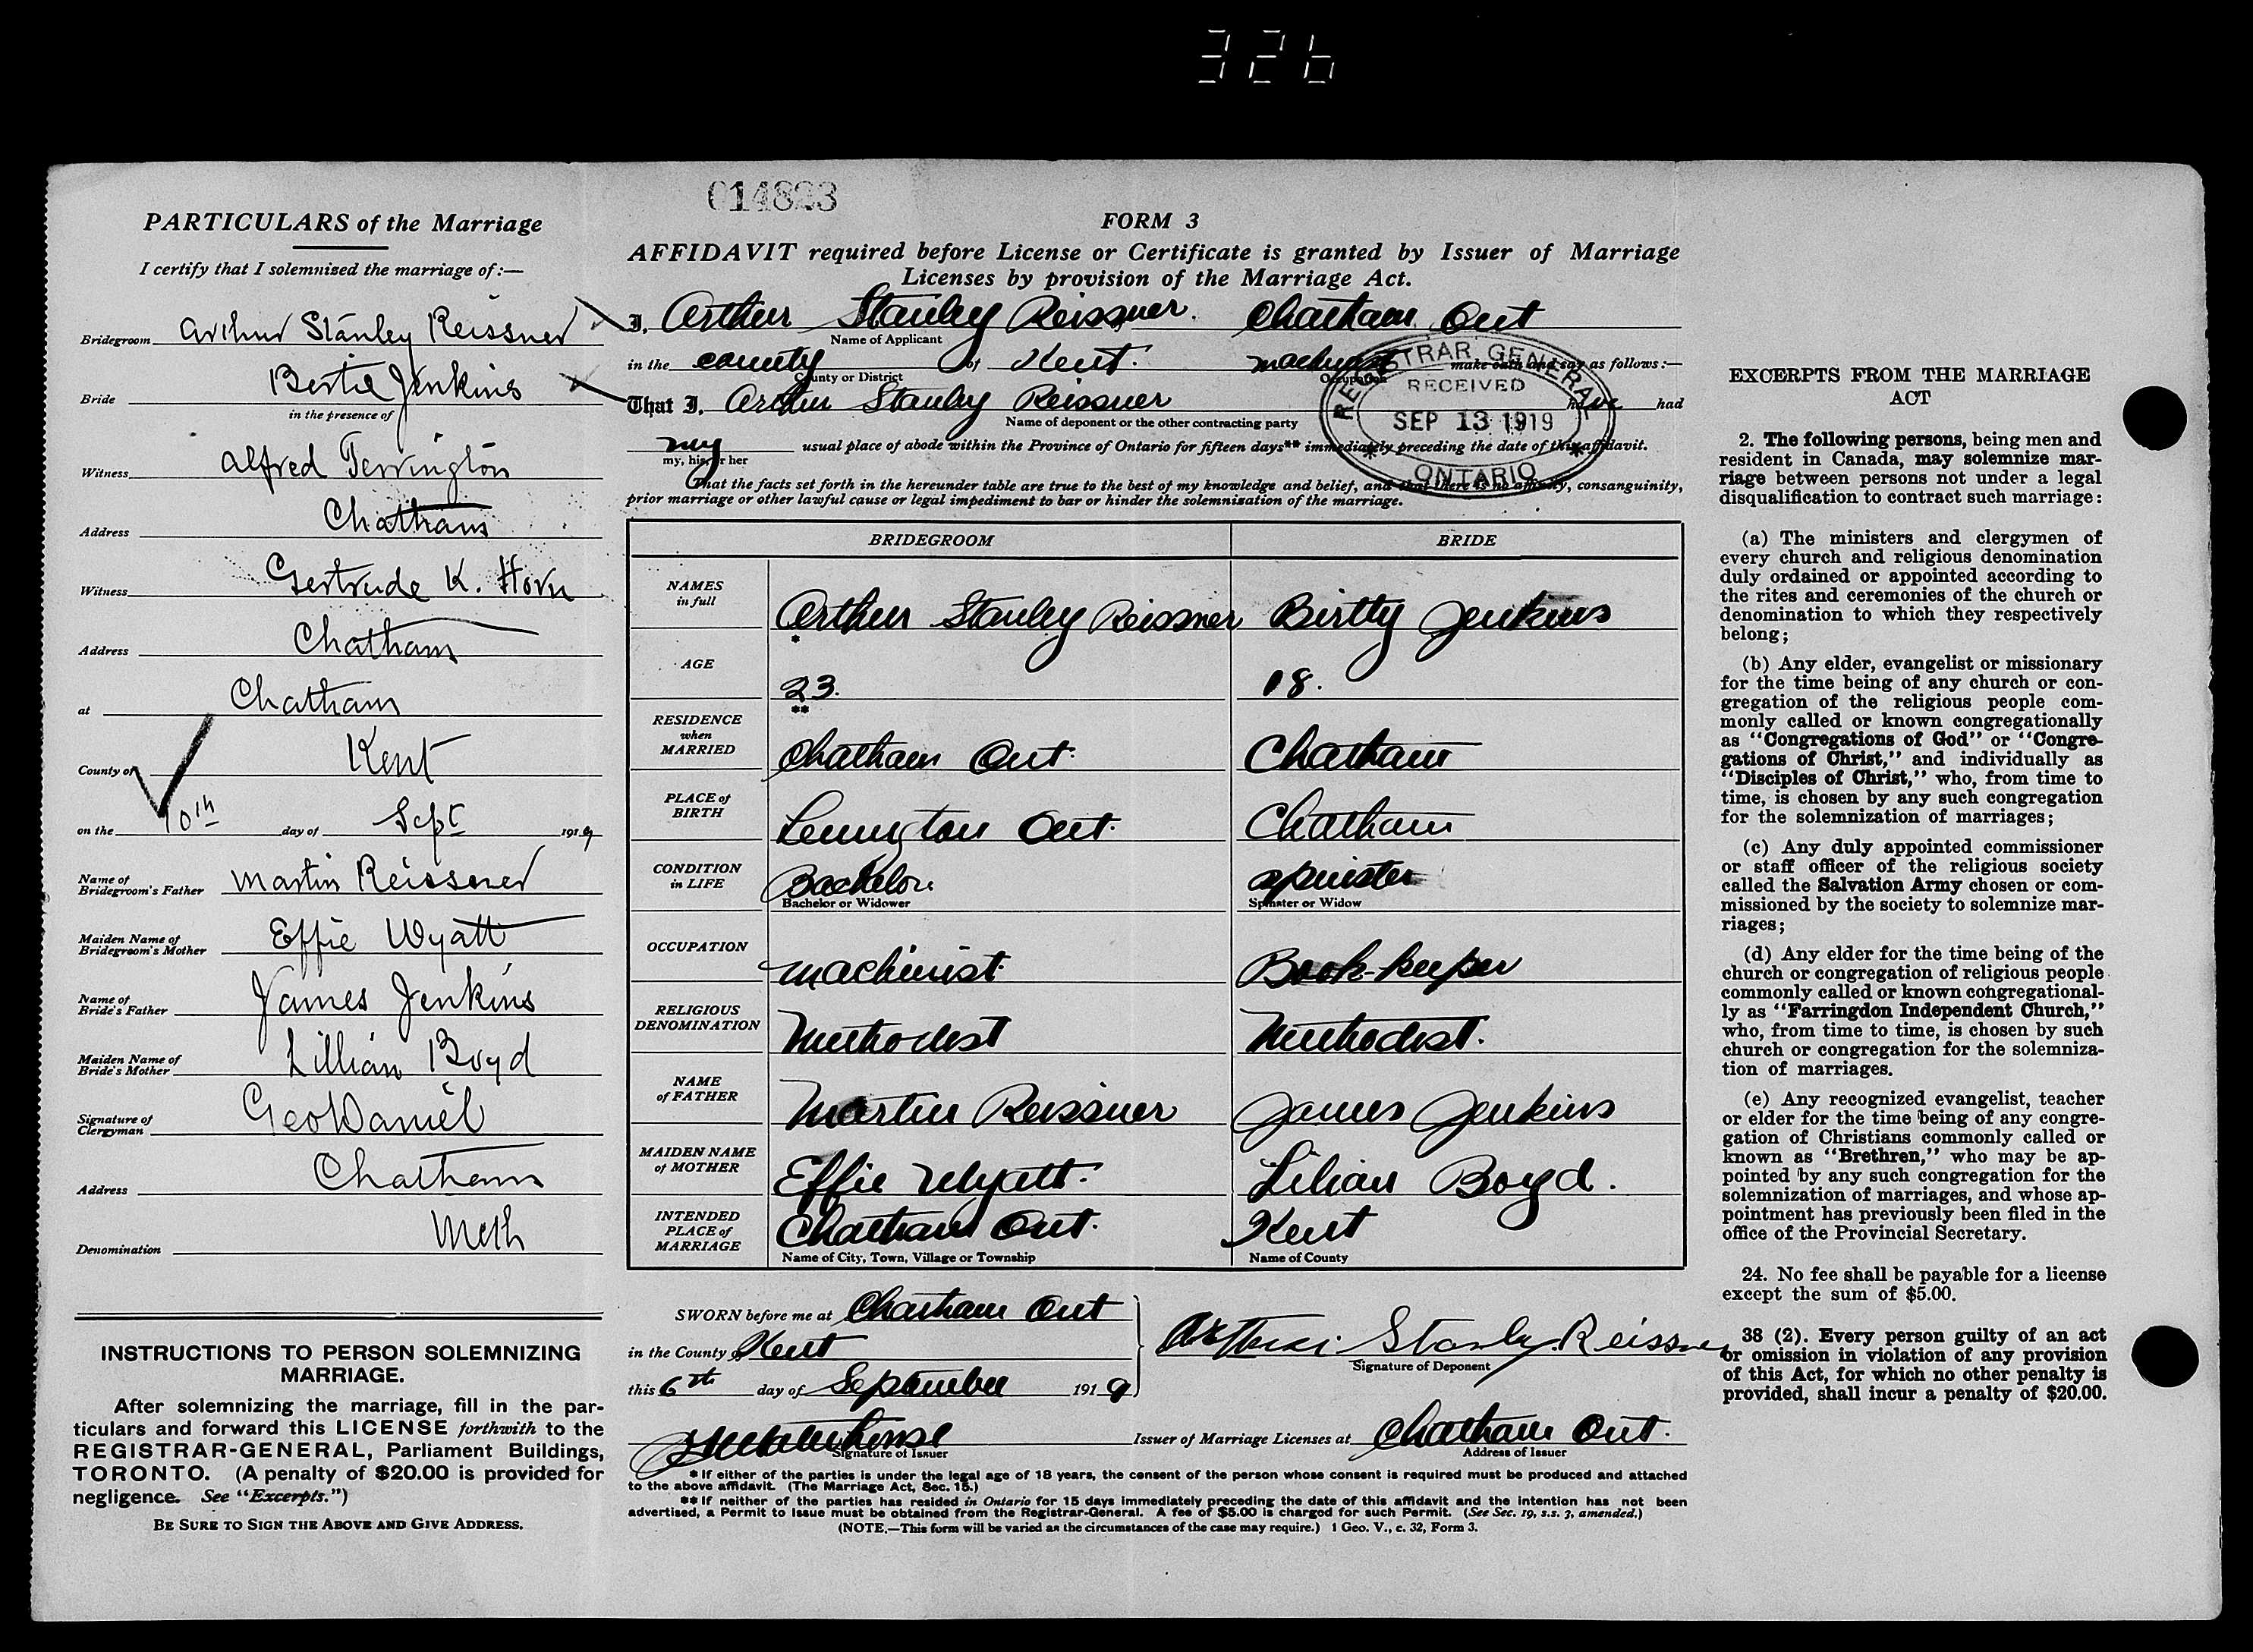 326
PARTICULARS of the Marriage
I certify that I solemnized the marriage of:—
Bridegroom Arthur Stanley Reissner
Bride Bertie Jenkins
in the presence of
Witness Alfred Terrington
Address Chatham
Witness Gertrude K. Horn
Address Chatham
at Chatham
County of Kent
on the 10th day of Sept 1919
Name of Bridegroom's Father Martin Reissner
Maiden Name of Bridegroom's Mother Effie Wyatt
Name of Bride's Father James Jenkins
Maiden Name of Bride's Mother Lillian Boyd
Signature of Clergyman Geo Daniel
Address Chatham
Denomination Meth
INSTRUCTIONS TO PERSON SOLEMNIZING
MARRIAGE.
After solemnizing the marriage, fill in the par-
ticulars and forward this LICENSE forthwith to the
REGISTRAR-GENERAL, Parliament Buildings,
TORONTO. (A penalty of $20.00 is provided for
negligence. See "Excerpts.")
BE SURE TO SIGN THE ABOVE AND GIVE ADDRESS.
014823
FORM 3
AFFIDAVIT required before License or Certificate is granted by Issuer of Marriage
Licenses by provision of the Marriage Act.
I, Arthur Stanley Reissner. Chatham Ont
Name of Applicant
in the county of Kent. machinist make oath and say as follows:—
County or District Occupation
That I, Arthur Stanley Reissner have had
Name of deponent or the other contracting party
my usual place of abode within the Province of Ontario for fifteen days** immediately preceding the date of this affidavit.
my, his, or her
That the facts set forth in the hereunder table are true to the best of my knowledge and belief, and that there is no affinity, consanguinity,
prior marriage or other lawful cause or legal impediment to bar or hinder the solemnization of the marriage.
REGISTRAR GENERAL
RECEIVED
SEP 13 1919
* ONTARIO *
BRIDEGROOM BRIDE
NAMES in full Arthur Stanley Reissner Birtty Jenkins
* AGE 23. 18.
** RESIDENCE when MARRIED Chatham Ont. Chatham
PLACE of BIRTH Lemington Ont. Chatham
CONDITION in LIFE Bachelor. spinster
Bachelor or Widower Spinster or Widow
OCCUPATION machinist Book-keeper
RELIGIOUS DENOMINATION Methodist Methodist.
NAME of FATHER Martin Reissner James Jenkins
MAIDEN NAME of MOTHER Effie Wyatt. Lilian Boyd.
INTENDED PLACE of MARRIAGE Chatham Ont. Kent
Name of City, Town, Village or Township Name of County
SWORN before me at Chatham Ont
in the County of Kent
this 6th day of September 1919
Arthur Stanley Reissner
Signature of Deponent
Signature of Issuer
Issuer of Marriage Licenses at Chatham Ont.
Address of Issuer
* If either of the parties is under the legal age of 18 years, the consent of the person whose consent is required must be produced and attached
to the above affidavit. (The Marriage Act, Sec. 15.)
** If neither of the parties has resided in Ontario for 15 days immediately preceding the date of this affidavit and the intention has not been
advertised, a Permit to Issue must be obtained from the Registrar-General. A fee of $5.00 is charged for such Permit. (See Sec. 19, s.s. 3, amended.)
(NOTE.—This form will be varied as the circumstances of the case may require.) 1 Geo. V., c. 32, Form 3.
EXCERPTS FROM THE MARRIAGE
ACT
2. The following persons, being men and
resident in Canada, may solemnize mar-
riage between persons not under a legal
disqualification to contract such marriage:
(a) The ministers and clergymen of
every church and religious denomination
duly ordained or appointed according to
the rites and ceremonies of the church or
denomination to which they respectively
belong;
(b) Any elder, evangelist or missionary
for the time being of any church or con-
gregation of the religious people com-
monly called or known congregationally
as "Congregations of God" or "Congre-
gations of Christ," and individually as
"Disciples of Christ," who, from time to
time, is chosen by any such congregation
for the solemnization of marriages;
(c) Any duly appointed commissioner
or staff officer of the religious society
called the Salvation Army chosen or com-
missioned by the society to solemnize mar-
riages;
(d) Any elder for the time being of the
church or congregation of religious people
commonly called or known congregational-
ly as "Farringdon Independent Church,"
who, from time to time, is chosen by such
church or congregation for the solemniza-
tion of marriages.
(e) Any recognized evangelist, teacher
or elder for the time being of any congre-
gation of Christians commonly called or
known as "Brethren," who may be ap-
pointed by any such congregation for the
solemnization of marriages, and whose ap-
pointment has previously been filed in the
office of the Provincial Secretary.
24. No fee shall be payable for a license
except the sum of $5.00.
38 (2). Every person guilty of an act
or omission in violation of any provision
of this Act, for which no other penalty is
provided, shall incur a penalty of $20.00.